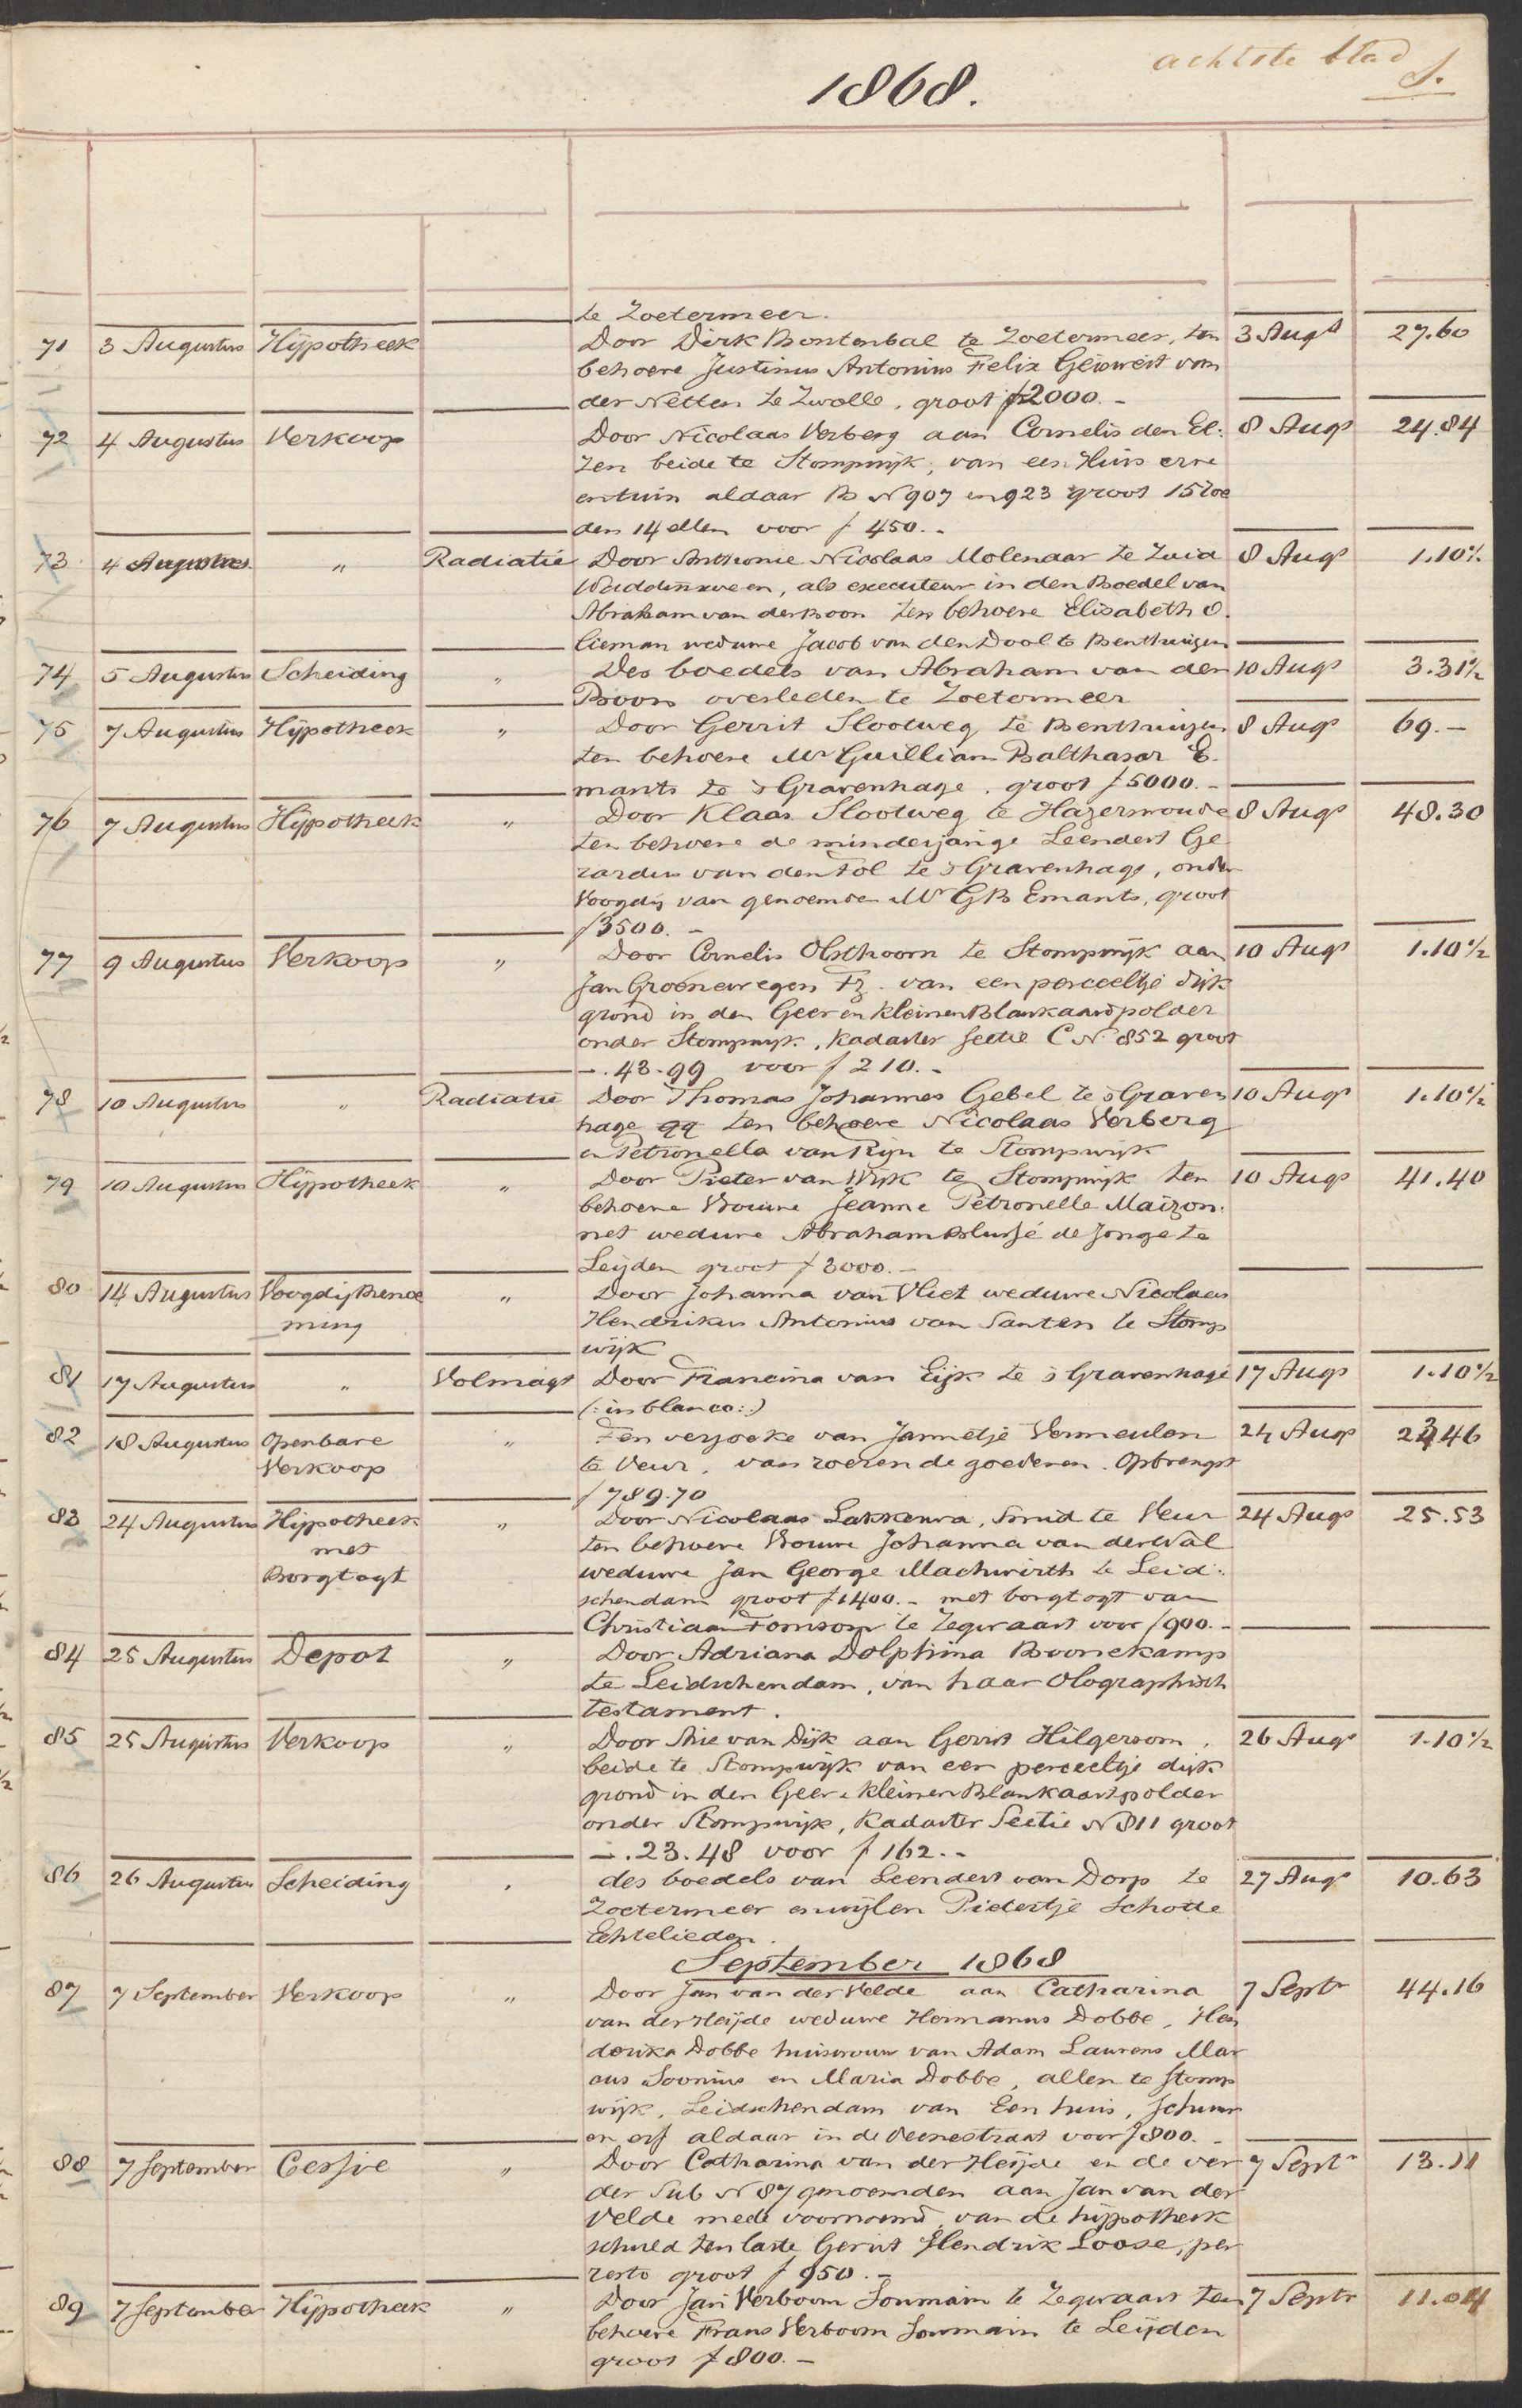 achtste blad
8.
1868.
te Zoetermeer.
71 3 Augustus Hijpotheek Door Dirk Bontenbal te Zoetermeer, ten 3 Augs 27.60
behoeve Justinus Antonius Felix van
der Netten te Zwolle, groot f2000.-
72 4 Augustus Verkoop Door Nicolaas Verberg aan Cornelis den El: 8 Augs 24.84
zen beide te Stompwijk, van een Huis erve
en tuin aldaar B No 907 en 923 groot 15 roe
den 14 ellen voor f 450.-
73 4 Augustus " Radiatie Door Anthonie Nicolaas Molenaar te Zuid 8 Augs 1.10½
Waddinxveen, als executeur in den Boedel van
Abraham van der Boon ten behoeve Elisabeth O.
lieman weduwe Jacob van den Dool te Benthuizen
74 5 Augustus Scheiding " Des boedels van Abraham van den 10 Augs 3.31½
Boon overleden te Zoetermeer
75 7 Augustus Hijpotheek " Door Gerrit Slootweg te Benthuizen 8 Augs 69.-
ten behoeve Mr Guilliam Balthasar E.
mants te s Gravenhage, groot f5000.-
76 7 Augustus Hijpotheek " Door Klaas Slootweg te Hazerswoude 8 Augs 48.30
ten behoeve de minderjarige Leendert Ge
rardus van den Tol te s Gravenhage, onder
Voogdij van genoemde Mr GB Emants, groot
f3500.-
77 9 Augustus Verkoop " Door Cornelis Olsthoorn te Stompwijk aan 10 Augs 1.10½
Jan Groenewegen Fz. van een perceeltje dijk
grond in den Geer en kleinen Blankaardpolder
onder Stompwijk, Kadaster Sectie C No 852 groot
-.43.99 voor f 210.-
78 10 Augustus " Radiatie Door Thomas Johannes Gebel te s Graven 10 Augs 1.10½
hage qq ten behoeve Nicolaas Verberg
en Petronella van Rijn te Stompwijk
79 10 Augustus Hijpotheek " Door Pieter van Wijk te Stompwijk ten 10 Augs 41.40
behoeve Vrouwe Jeanne Petronelle Maizon.
net weduwe Abraham Blussé de Jonge te
Leijden groot f3000.-
80 14 Augustus Voogdij Benoe " Door Johanna van Vliet weduwe Nicolaas
ming Hendrikus Antonius van Santen te Stomp
wijk
81 17 Augustus " Volmagt Door Francina van Eijk te s Gravenhage 17 Augs 1.10½
(: in blanco:)
82 18 Augustus Openbare " Ten verzoeke van Jannetje Vermeulen 24 Augs 23.46
Verkoop te Veur, van roerende goederen. Opbrengst
f 789.70
83 24 Augustus Hijpotheek " Door Nicolaas Lakkenra, Smid te Veur 24 Augs 25.53
met ten behoeve Vrouwe Johanna van der Wal
Borgtogt weduwe Jan George Machwirth te Leid:
schendam groot f1400.- met borgtogt van
Christiaan Tomson te Zegwaart voor f900.-
84 25 Augustus Depot " Door Adriana Dolphina Boonekamp
te Leidschendam, van haar Olographisch
testament.
85 25 Augustus Verkoop " Door Arie van Dijk aan Gerrit Hilgersom, 26 Augs 1.10½
beide te Stompwijk van een perceeltje dijk
grond in den Geer & kleinen Blankaartpolder
onder Stompwijk, Kadaster Sectie No 811 groot
-.23.48 voor f 162.-
86 26 Augustus Scheiding " des boedels van Leendert van Dorp te 27 Augs 10.63
Zoetermeer en wijlen Pietertje Schotte
Echtelieden.
September 1868
87 7 September Verkoop " Door Jan van der Velde aan Catharina 7 Septr 44.16
van der Heijde weduwe Hermanus Dobbe, Hen
derika Dobbe huisvrouw van Adam Laurens Mar
cus Soonius en Maria Dobbe, allen te Stomp
wijk, Leidschendam van Een huis, schuur
en erf aldaar in de Veenestraat voor f800.-
88 7 September Cessie " Door Catharina van der Heijde en de ver 7 Septr 13.11
der Sub No 87 genoemden aan Jan van der
Velde mede voornoemd, van de hijpotheek
schuld ten laste Gerrit Hendrik Loose, per
resto groot f 950.-
89 7 September Hijpotheek " Door Jan Verboom Soumain te Zegwaart ten 7 Septr 11.04
behoeve Frans Verboom Soumain te Leijden
groot f 800.-